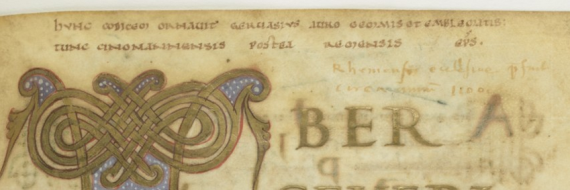 hunc codicem ornauit geruasius auro gemmis et emblematis:
tunc cinomannensis postea remensis ep̄s.
Rhemensis ecclesiae
circa annum 1200.
BER A